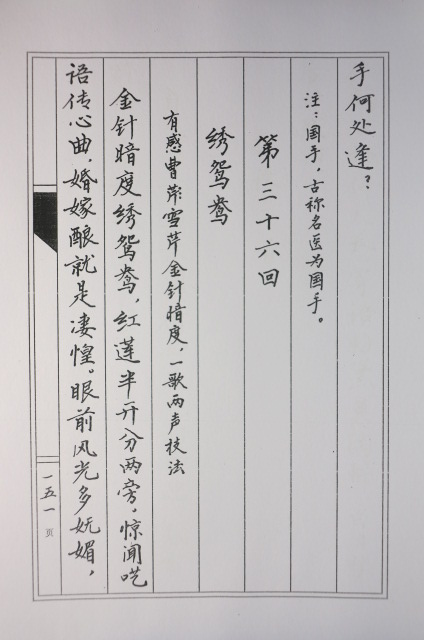 手何处逢？
注：国手，古称名医为国手。
第三十六回
绣鸳鸯
有感曹芹雪芹金针暗度，一歌两声技法
金针暗度绣鸳鸯，红莲半开分两旁，惊闻呓
语传心曲，婚嫁酿就是凄惶。眼前风光多妩媚，
一五一页